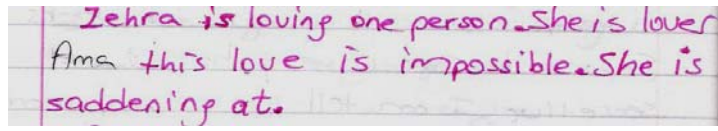 Zehra is loving one person. She is lover
Ama this love is impossible. She is
saddening at.